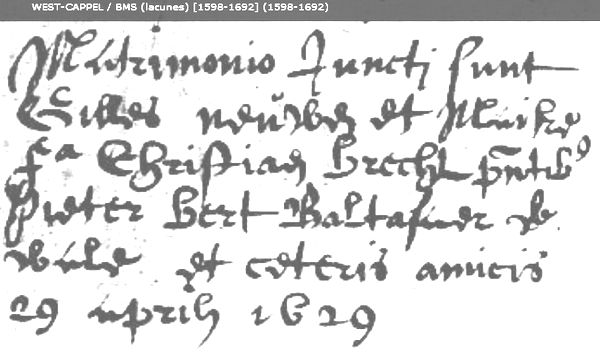 WEST-CAPPEL / BMS (lacunes) [1598-1692] (1598-1692)
Matrimonio Juncti sunt
Gilles neuwen et Maike
fa Christiaen Brecht pntib9
Pieter Bert Baltasaer de
wale et ceteris amicis
29 aprilis 1629